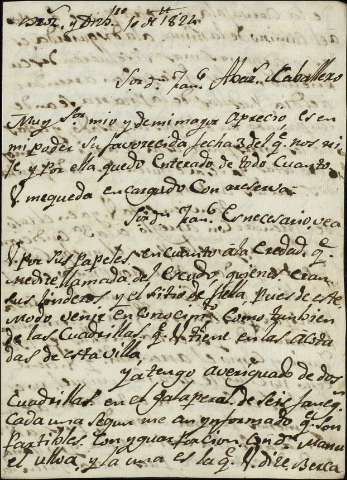 y Dizb.re 1.o de 1824
Sor. dn. Fran.co Albar.s Caballero
Muy Sor mio y de mi mayor Aprecio, es en
mi poder Su faborecida fecha 3 del q.e nos ri
je, y Por ella quedo Enterado de todo Cuanto
V me queda encargado Con reserva.
Sor. dn. Fran.co Es necesario, vea
V. Por sus papeles en Cuanto ála Eredad q.e
Medize llamada del Escudo quienes eran
sus linderos y el Sitio de ella, Pues de este
modo, vendré en Conocim.to Como tambien
de las Cuadrillas q.e V tiene en las
das de esta Villa
ya tengo aberiguado de dos
Cuadrillas en el galaperal de Seis faneg.s
Cada una segun me an ynformado q.e son
Partibles. Con yguar Con dn. Manu
el ulloa, y la una es la q.e V. dize